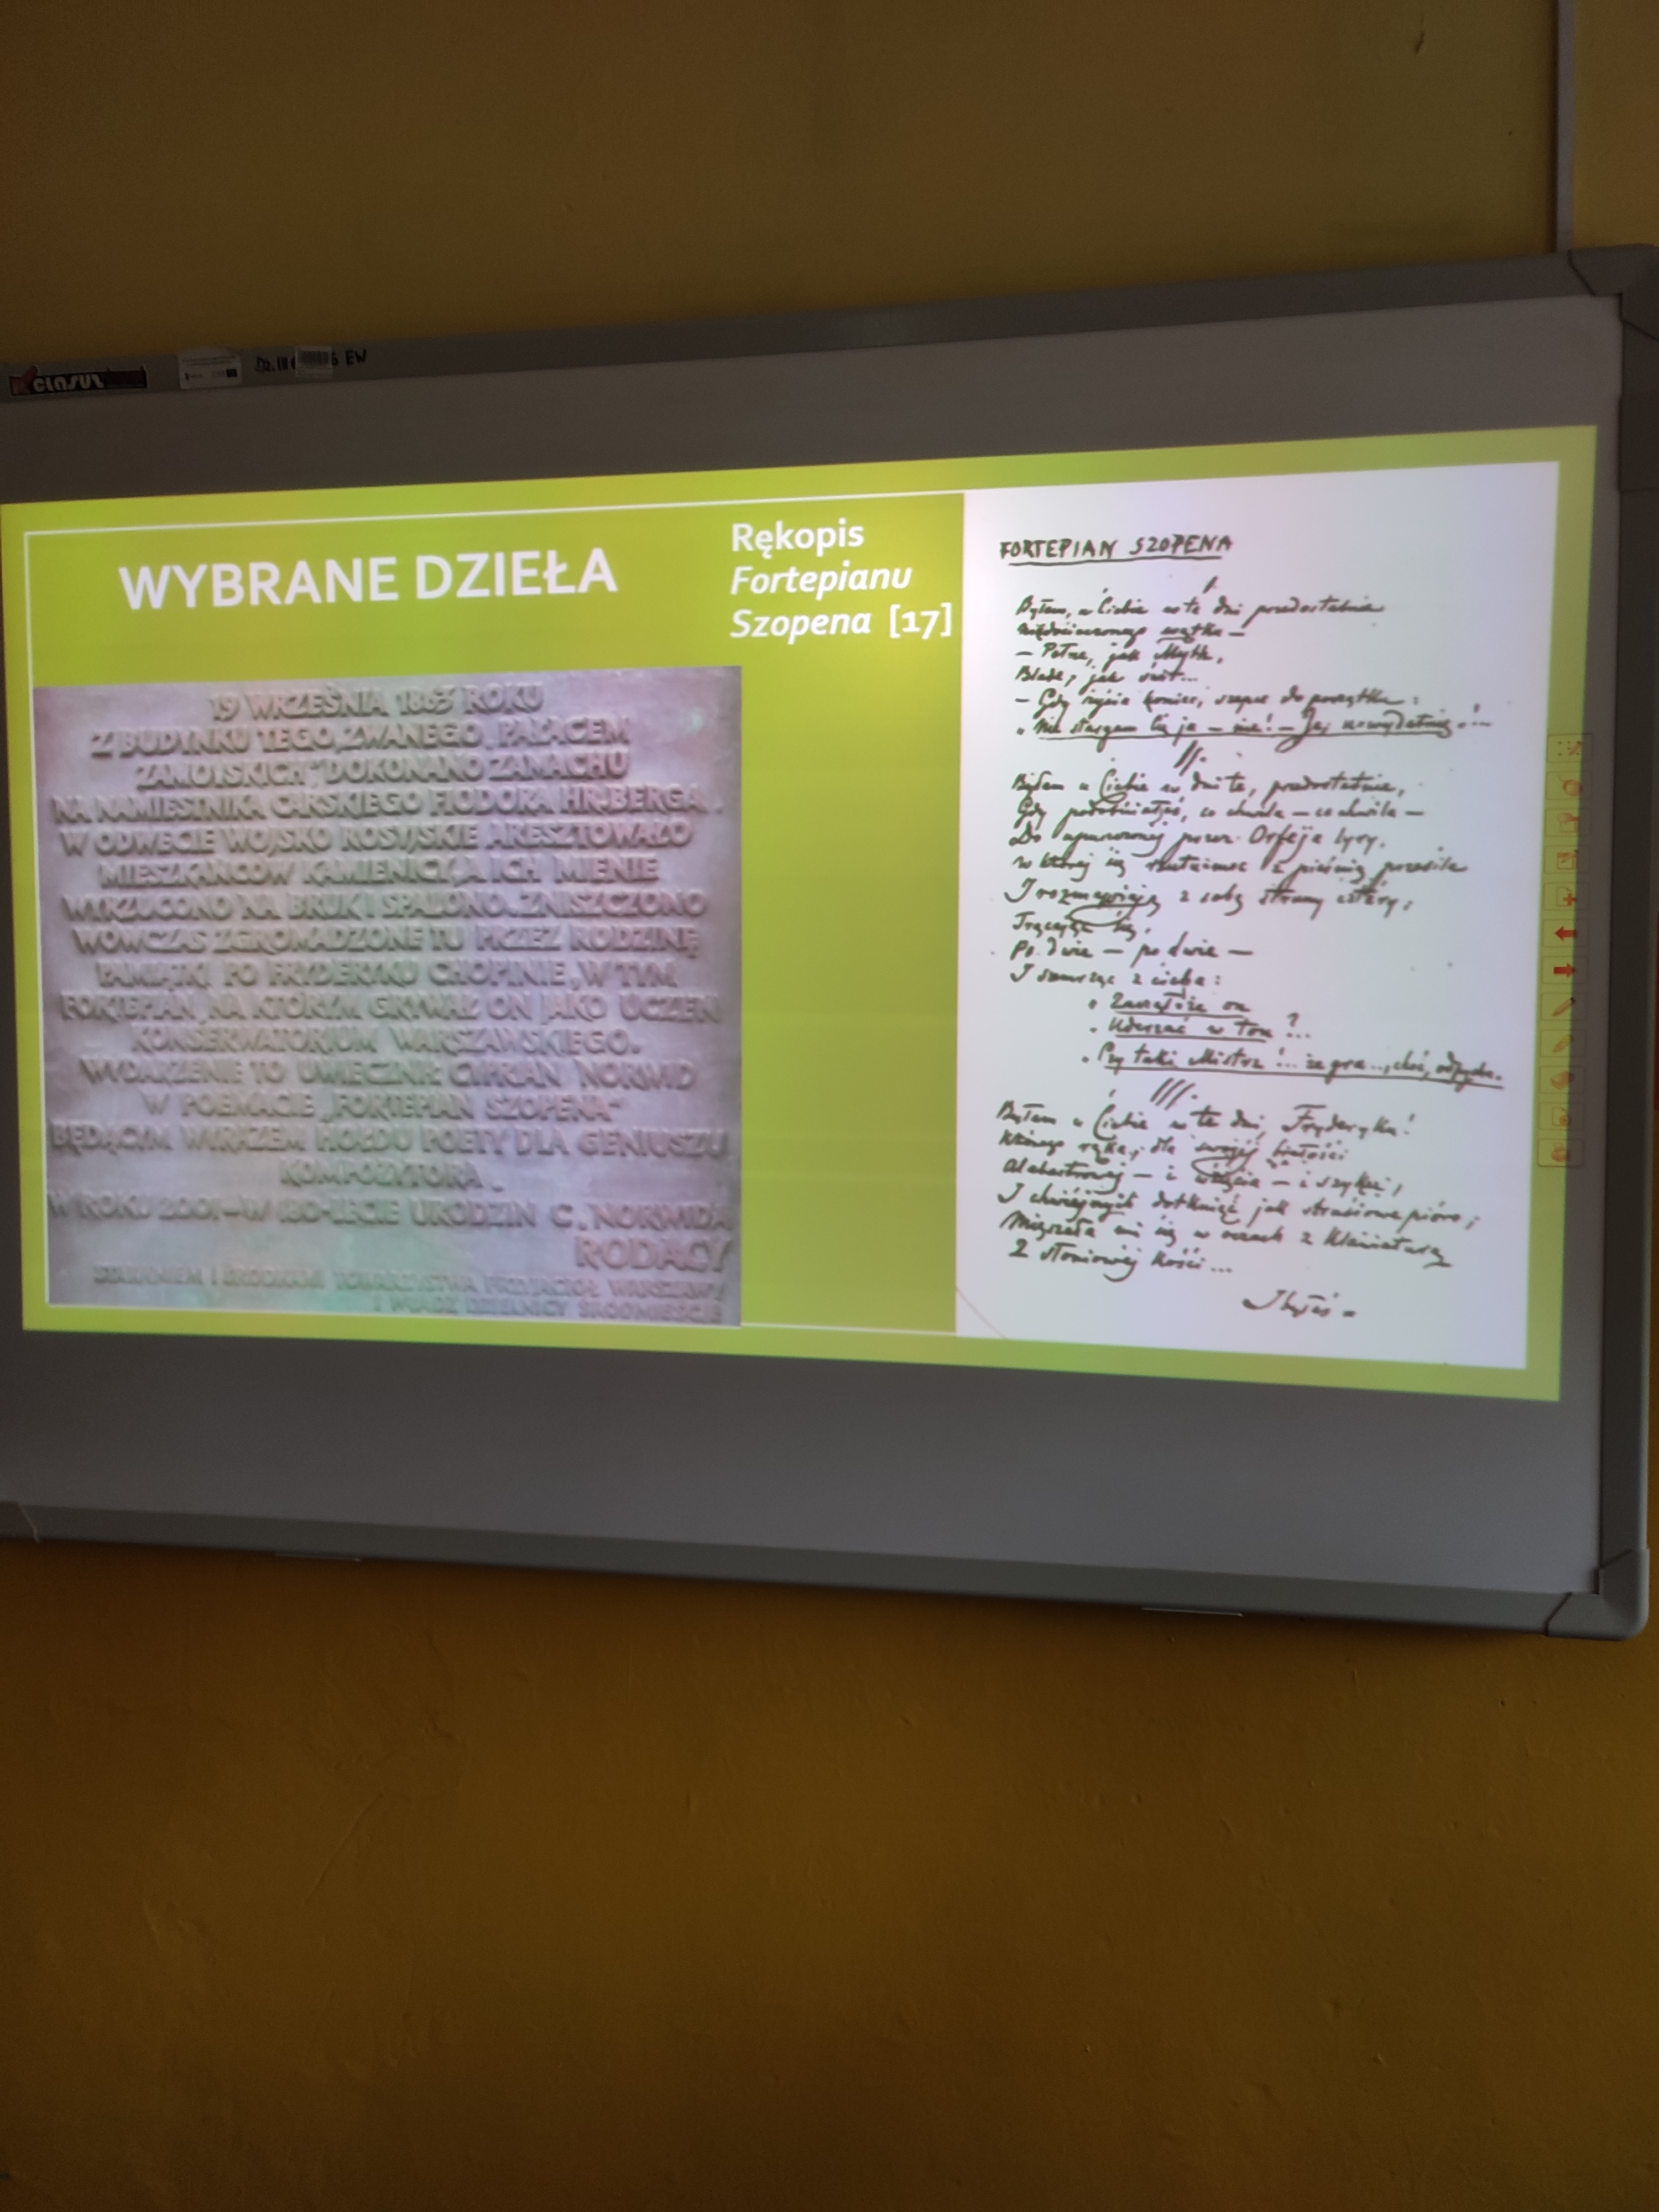 clasus
EW
WYBRANE DZIEŁA
Rękopis
Fortepianu
Szopena [17]
19 WRZEŚNIA 1863 ROKU
Z BUDYNKU TEGO, ZWANEGO „PAŁACEM
ZAMOYSKICH", DOKONANO ZAMACHU
NA NAMIESTNIKA CARSKIEGO FIODORA HR. BERGA.
W ODWECIE WOJSKO ROSYJSKIE ARESZTOWAŁO
MIESZKAŃCÓW KAMIENICY, A ICH MIENIE
WYRZUCONO NA BRUK I SPALONO. ZNISZCZONO
WÓWCZAS ZGROMADZONE TU PRZEZ RODZINĘ
PAMIĄTKI PO FRYDERYKU CHOPINIE, W TYM
FORTEPIAN, NA KTÓRYM GRYWAŁ ON JAKO UCZEŃ
KONSERWATORIUM WARSZAWSKIEGO.
WYDARZENIE TO UWIECZNIŁ CYPRIAN NORWID
W POEMACIE „FORTEPIAN SZOPENA"
BĘDĄCYM WYRAZEM HOŁDU POETY DLA GENIUSZU
KOMPOZYTORA.
W ROKU 2001 – W 180-LECIE URODZIN C. NORWIDA
RODACY
STARANIEM I ŚRODKAMI TOWARZYSTWA PRZYJACIÓŁ WARSZAWY
I WŁADZ DZIELNICY ŚRÓDMIEŚCIE
FORTEPIAN SZOPENA
I.
Byłem u Ciebie w te dni przedostatnie
wątku —
— Pełne, jak Myth,
Blade, jak świt...
— Gdy życia koniec, szepce do początku:
„Nie stargam Cię ja — nie! — Ja, uwydatnię!...
II.
Byłem u Ciebie w dni te, przedostatnie,
Gdy podobniałeś, co chwila — co chwila —
Do upuszczonej przez Orfeja lyry,
w której się z pieśnią przesila
I rozmawiają z sobą struny cztéry,
Trącając się,
Po dwie — po dwie —
I szemrząc z cicha:
„Zacząłże on
„Uderzać w ton?...
„Czy taki Mistrz!... że gra.., choć, odpycha..
III.
Byłem u Ciebie w te dni, Fryderyku!
Którego ręka, dla swojej białości
Alabastrowej — i wzięcia — i szyku,
I chwiejnych dotknięć jak strusiowe pióro,
Mięszała mi się w oczach z klawiaturą
Z słoniowej kości...
I byłeś